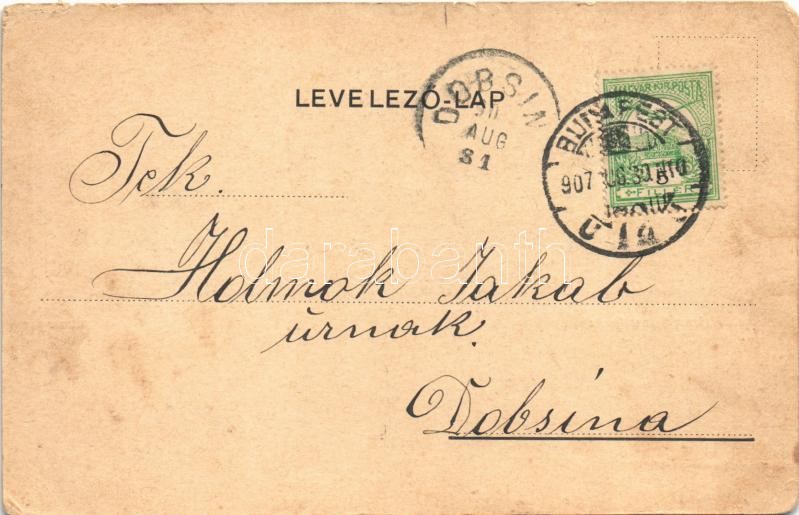 LEVELEZŐ-LAP
DOBSIN
AUG
31
MAGYAR KIR. POSTA
FILLÉR
BUDAPEST
907
Tek.
Holmok Jakab
úrnak.
Dobsina
darabanth